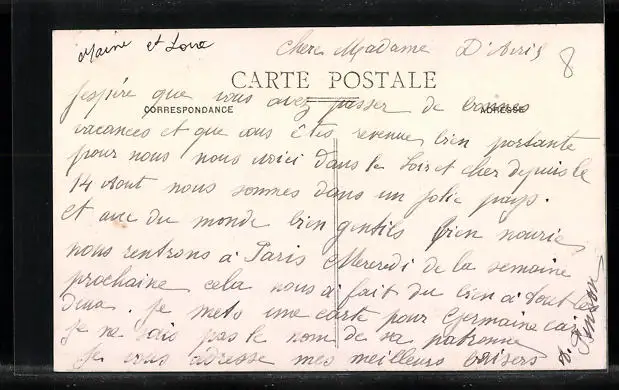 Maine et Loire
Chere Madame D'Avril
8
CARTE POSTALE
CORRESPONDANCE
ADRESSE
J'espère que vous avez passer de bonnes
vacances et que vous êtes revenue bien portante
pour nous nous voici dans le Loir et Cher depuis le
14 Aout nous sommes dans un jolie pays.
et avec du monde bien gentils bien nouris
nous rentrons à Paris Mercredi de la semaine
prochaine cela nous à fait du bien à tout les
deux. je mets une carte pour Germaine car
je ne sais pas le nom de sa patronne
Je vous adresse mes meilleurs baisers